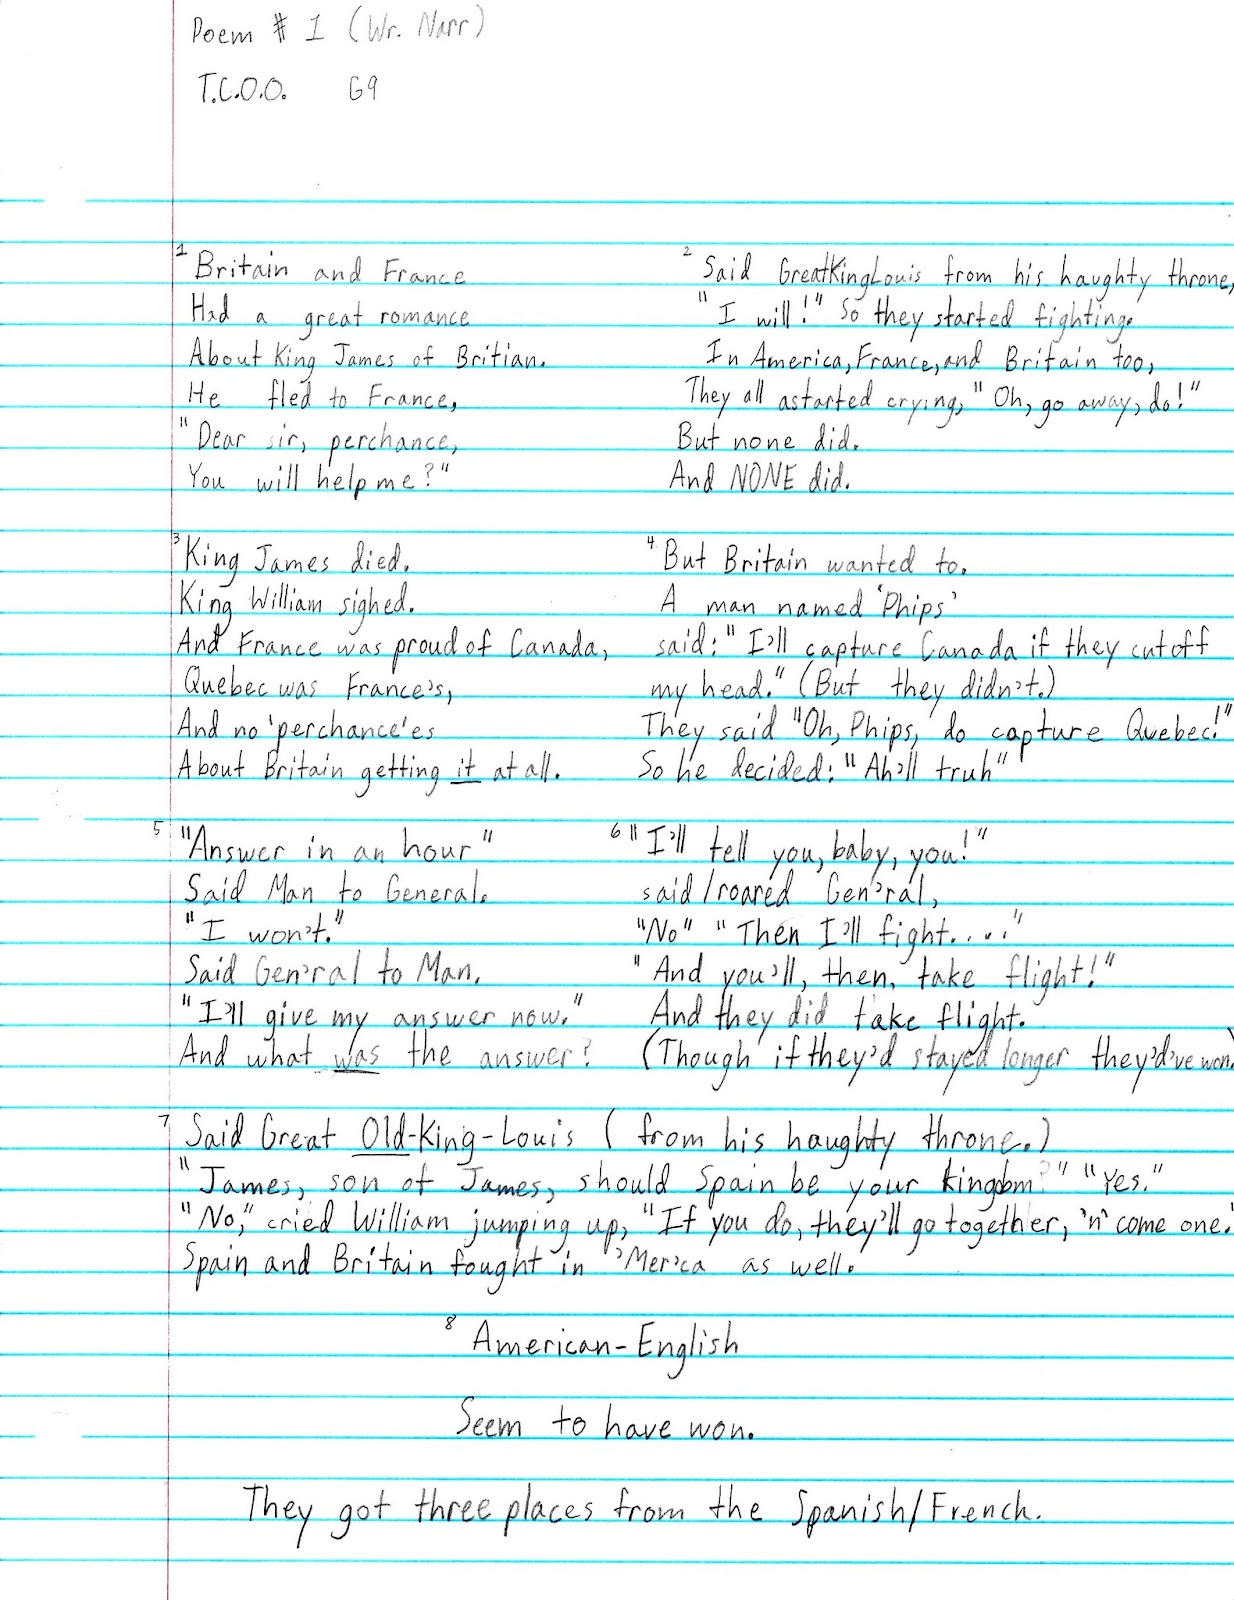 Poem # 1 (Wr. Narr)
T.C.O.O. G9
1 Britain and France
Had a great romance
About King James of Britian.
He fled to France,
"Dear sir, perchance,
You will help me?"
2 Said GreatKingLouis from his haughty throne,
"I will!" So they started fighting.
In America, France, and Britain too,
They all astarted crying, "Oh, go away, do!"
But none did.
And NONE did.
3 King James died.
King William sighed.
And France was proud of Canada,
Quebec was France's,
And no 'perchance'es
About Britain getting it at all.
4 But Britain wanted to.
A man named 'Phips'
said: "I'll capture Canada if they cut off
my head." (But they didn't.)
They said "Oh, Phips, do capture Quebec!"
So he decided: "Ah'll truh"
5 "Answer in an hour"
Said Man to General.
"I won't."
Said Gen'ral to Man.
"I'll give my answer now."
And what was the answer?
6 "I'll tell you, baby, you!"
said/roared Gen'ral,
"No" "Then I'll fight....."
"And you'll, then, take flight!"
And they did take flight.
(Though if they'd stayed longer they'd've won.)
7 Said Great Old-King-Louis (from his haughty throne.)
"James, son of James, should Spain be your kingdom?" "Yes."
"No," cried William jumping up, "If you do, they'll go together, 'n' come one."
Spain and Britain fought in 'Mer'ca as well.
8 American-English
Seem to have won.
They got three places from the Spanish/French.